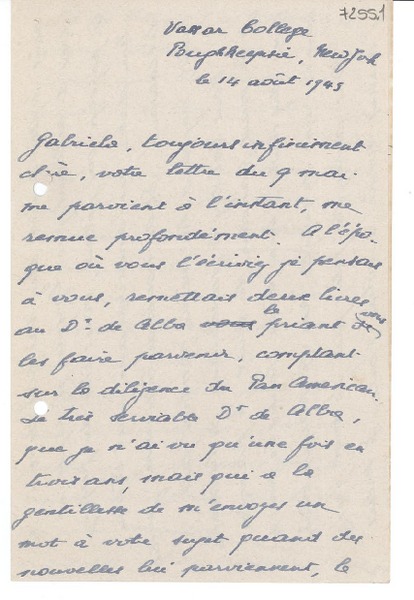 7255.1
Vassar College
Poughkeepsie, New York
le 14 août 1945
Gabriela, toujours infiniment
chère, votre lettre du 9 mai
me parvient à l'instant, me
remue profondément. A l'épo-
que où vous l'écriviez je pensais
à vous, remettais deux livres
au Dr de Alba vous le priant de vous
les faire parvenir, comptant
sur la diligence du Pan American.
Le très serviable Dr de Alba,
que je n'ai vu qu'une fois en
trois ans, mais qui a la
gentillesse de m'envoyer un
mot à votre sujet quand des
nouvelles lui parviennent, le